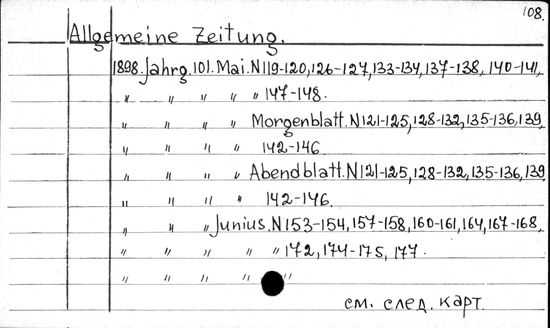 108.
Allgemeine Zeitung.
1898. Jahrg. 101. Mai. N119-120, 126-127, 133-134, 137-138, 140-141,
" " " " " 147-148.
" " " " Morgenblatt. N121-125, 128-132, 135-136, 139,
" " " " 142-146.
" " " " Abendblatt. N121-125, 128-132, 135-136, 139
" " " " 142-146.
" " " Junius. N153-154, 157-158, 160-161, 164, 167-168,
" " " " " 172, 174-175, 177.
" " " " "
см. след. карт.